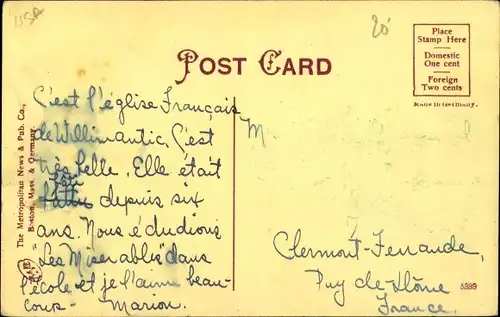 USA
20
POST CARD
Place
Stamp Here
Domestic
One cent
Foreign
Two cents
Made in Germany.
The Metropolitan News & Pub. Co.,
Boston, Mass. & Germany.
C'est l'église Français
de Willimantic. C'est
très belle. Elle était
bâti
depuis six
ans. Nous édudions
"Les Miserables" dans
l'école et je l'aime beau-
coup - Marion.
M
Clermont-Ferrande,
Puy de Dôme
France.